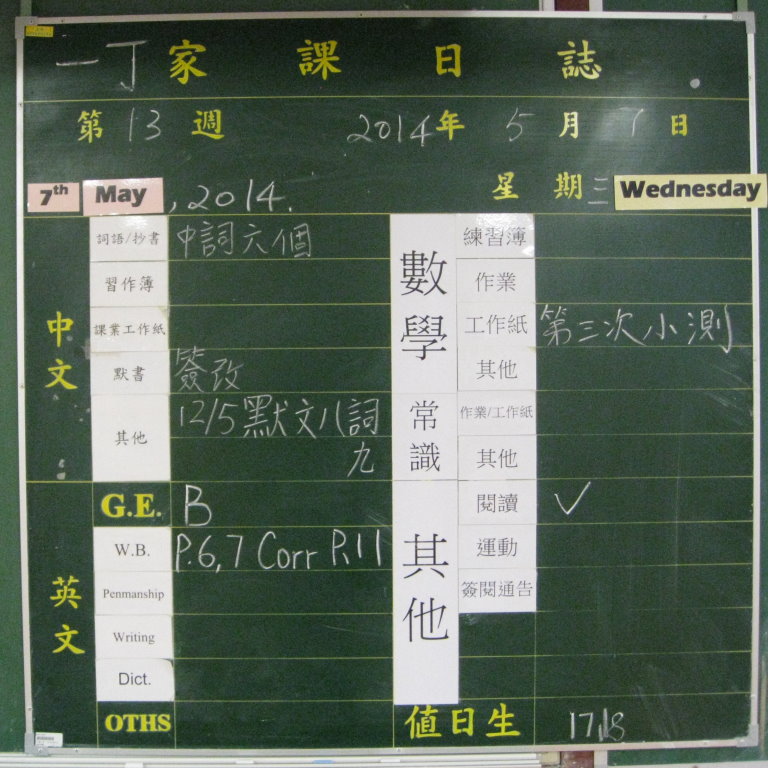 一丁家課日誌
第13週 2014年5月7日
7th May, 2014. 星期三 Wednesday
中文
詞語/抄書 中詞六個
習作簿
課業工作紙
默書 簽改
其他 12/5默文八詞
九
英文
G.E. B
W.B. P.6,7 Corr P.11
Penmanship
Writing
Dict.
OTHS
數學
練習簿
作業
工作紙 第三次小測
其他
常識
作業/工作紙
其他
其他
閱讀 ✓
運動
簽閱通告
值日生 17,18